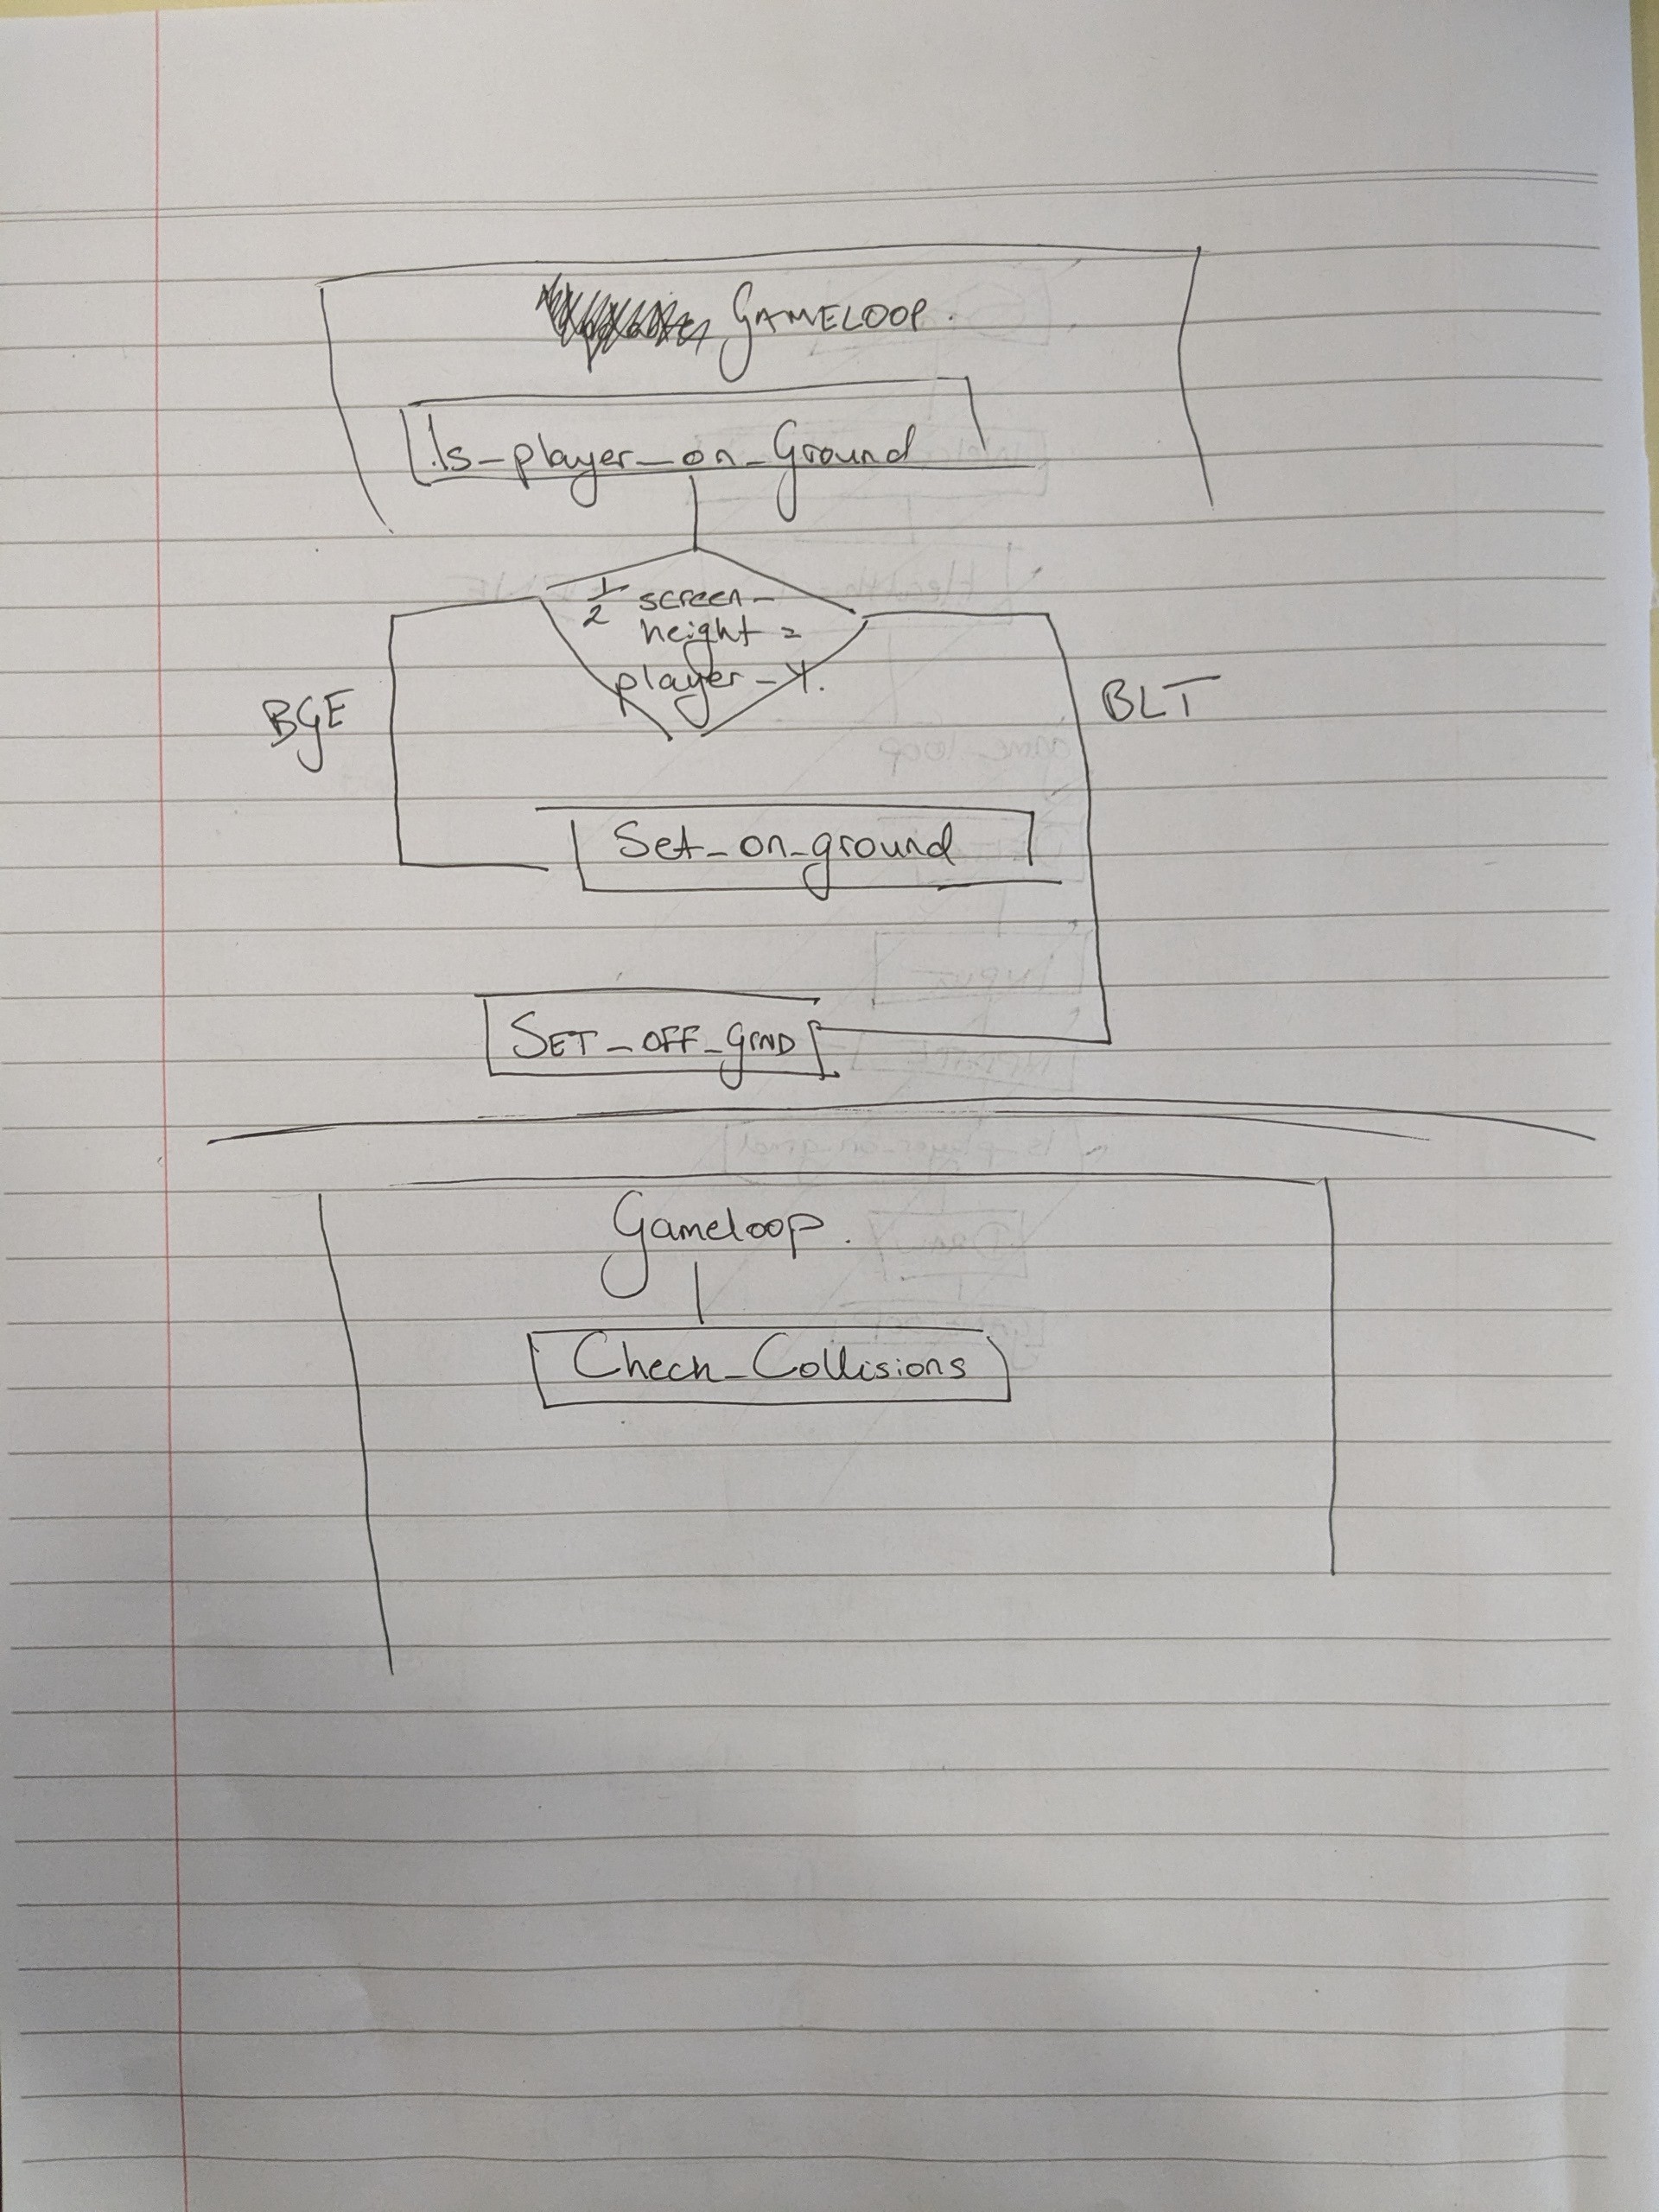 GAMELOOP.
Is_player_on_Ground
1/2 screen_
height =
player_Y.
BGE
BLT
Set_on_ground
SET_OFF_GRND
Gameloop.
Check_Collisions